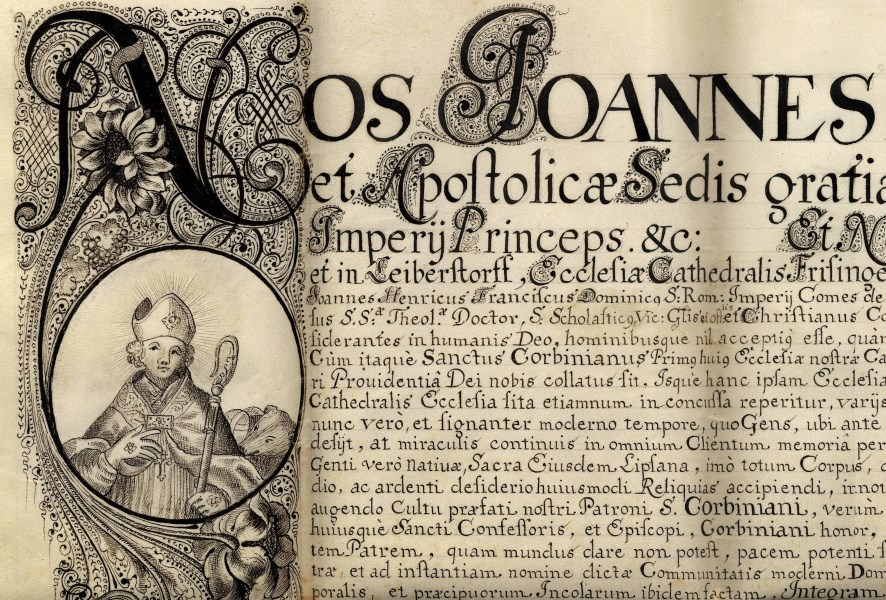 NOS JOANNES
et Apostolicæ Sedis gratia
Imperij Princeps. &c: Et N
et in Leiberstorff, Ecclesiæ Cathedralis Frisinge
Joannes Henricus Franciscus Dominicq S: Rom: Imperij Comes de
sus S.S:æ Theol.æ Doctor, S. Scholasticq Vic: et Christianus Co
siderantes in humanis Deo, hominibusque nil acceptiq esse, quàm
Cùm itaquè Sanctus Corbinianus Primq huiq Ecclesiæ nostræ Ca
ri Prouidentiâ Dei nobis collatus sit, Isque hanc ipsam Ecclesia
Cathedralis Ecclesia sita etiamnum in concussa reperitur, varijs
nunc verò, et signanter moderno tempore, quo Gens, ubi ante
desijt, at miraculis continuis in omnium Clientum memoriâ per
Genti verò natiuæ, Sacra Eiusdem Lipsana, imò totum Corpus,
dio, ac ardenti desiderio huiusmodi Reliquias accipiendi, innot
augendo Cultu præfati nostri Patroni S. Corbiniani, verum
huiusque Sancti Confessoris, et Episcopi, Corbiniani honor,
tem Patrem, quam mundus dare non potest, pacem potenti s
træ, et ad instantiam nomine dictæ Communitatis moderni Dom
poralis, et præcipuorum Incolarum ibidem factam, Integram